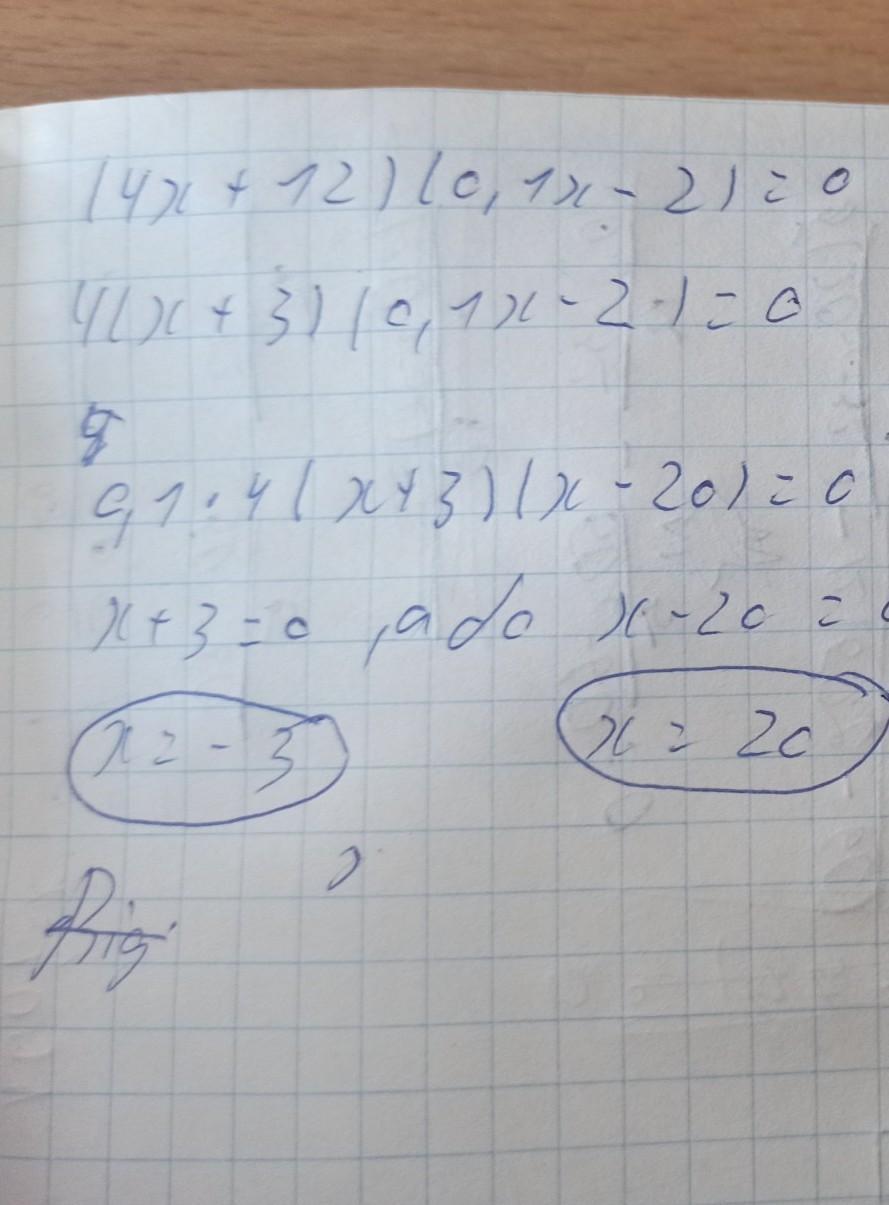 (4x + 12)(0,1x - 2) = 0
4(x + 3)(0,1x - 2) = 0
0,1 · 4(x+3)(x - 20) = 0
x+3=0 ,або x-20 =
x = - 3 x = 20
Від